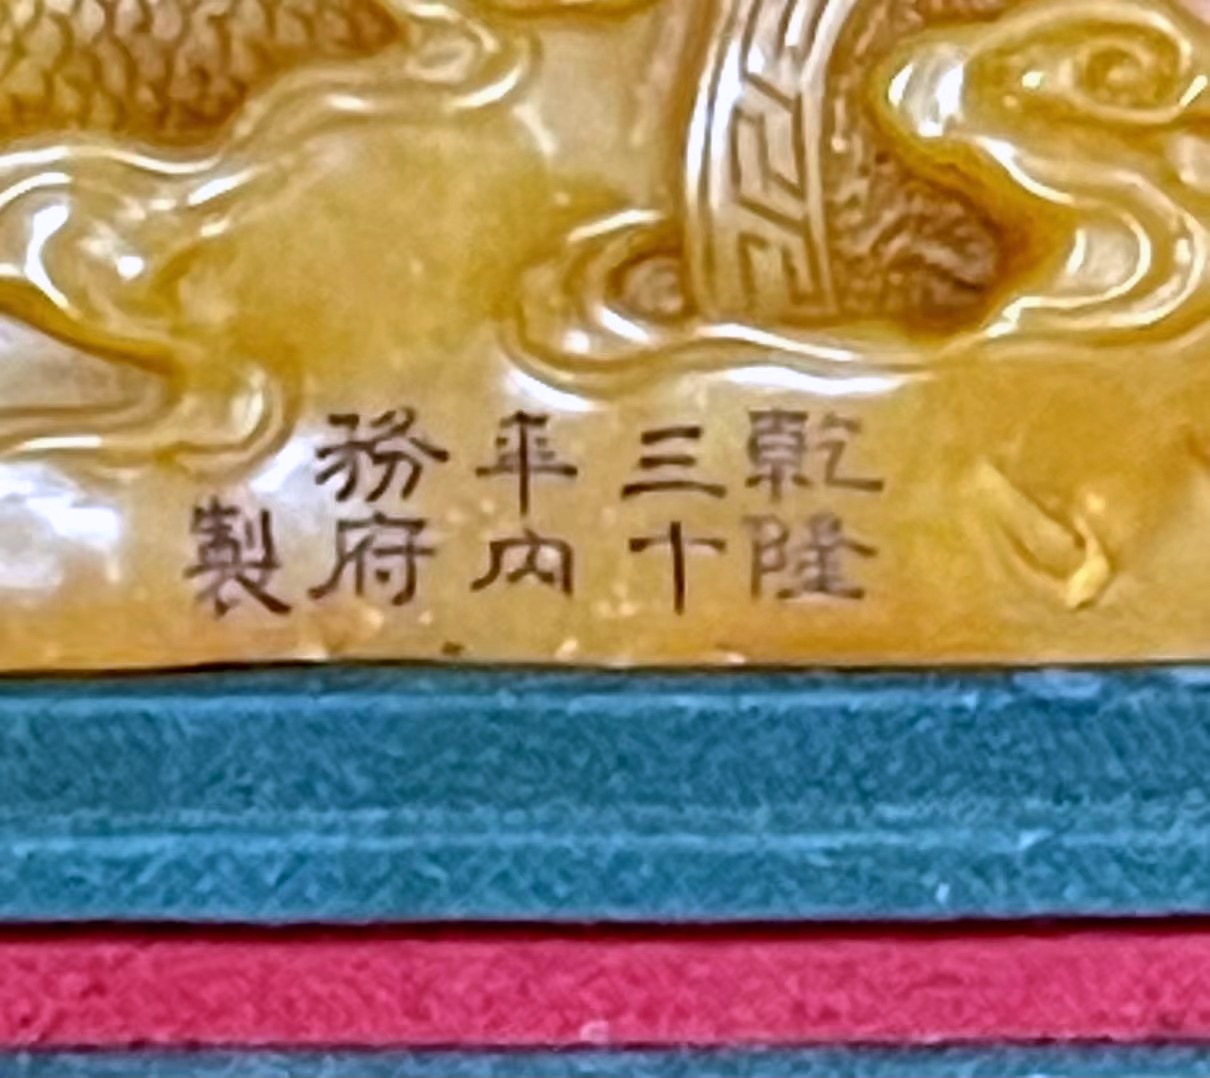 乾隆
三十
年內
務府
製